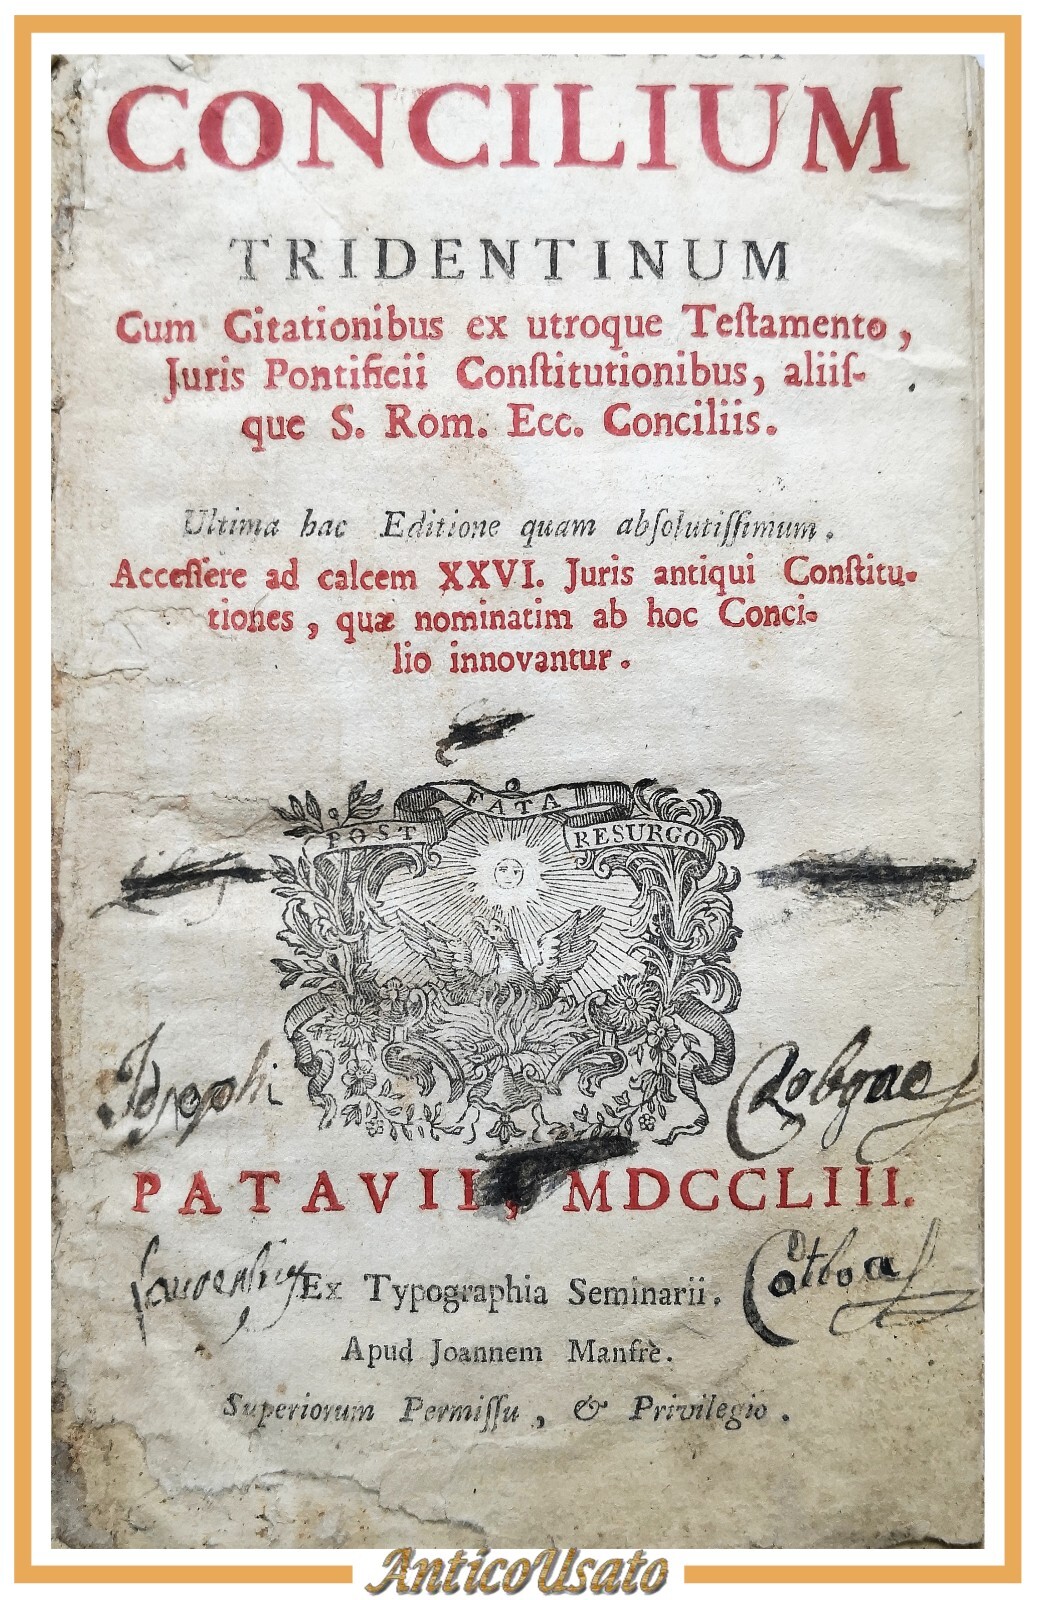 CONCILIUM
TRIDENTINUM
Cum Citationibus ex utroque Teſtamento,
Juris Pontificii Conſtitutionibus, aliiſ-
que S. Rom. Ecc. Conciliis.
Ultima hac Editione quam abſolutiſſimum.
Acceſſere ad calcem XXVI. Juris antiqui Conſtitu-
tiones, quæ nominatim ab hoc Conci-
lio innovantur.
POST FATA RESURGO
Joseph
PATAVII, MDCCLIII.
Ex Typographia Seminarii.
Apud Joannem Manfrè.
Superiorum Permiſſu, & Privilegio.
AnticoUsato